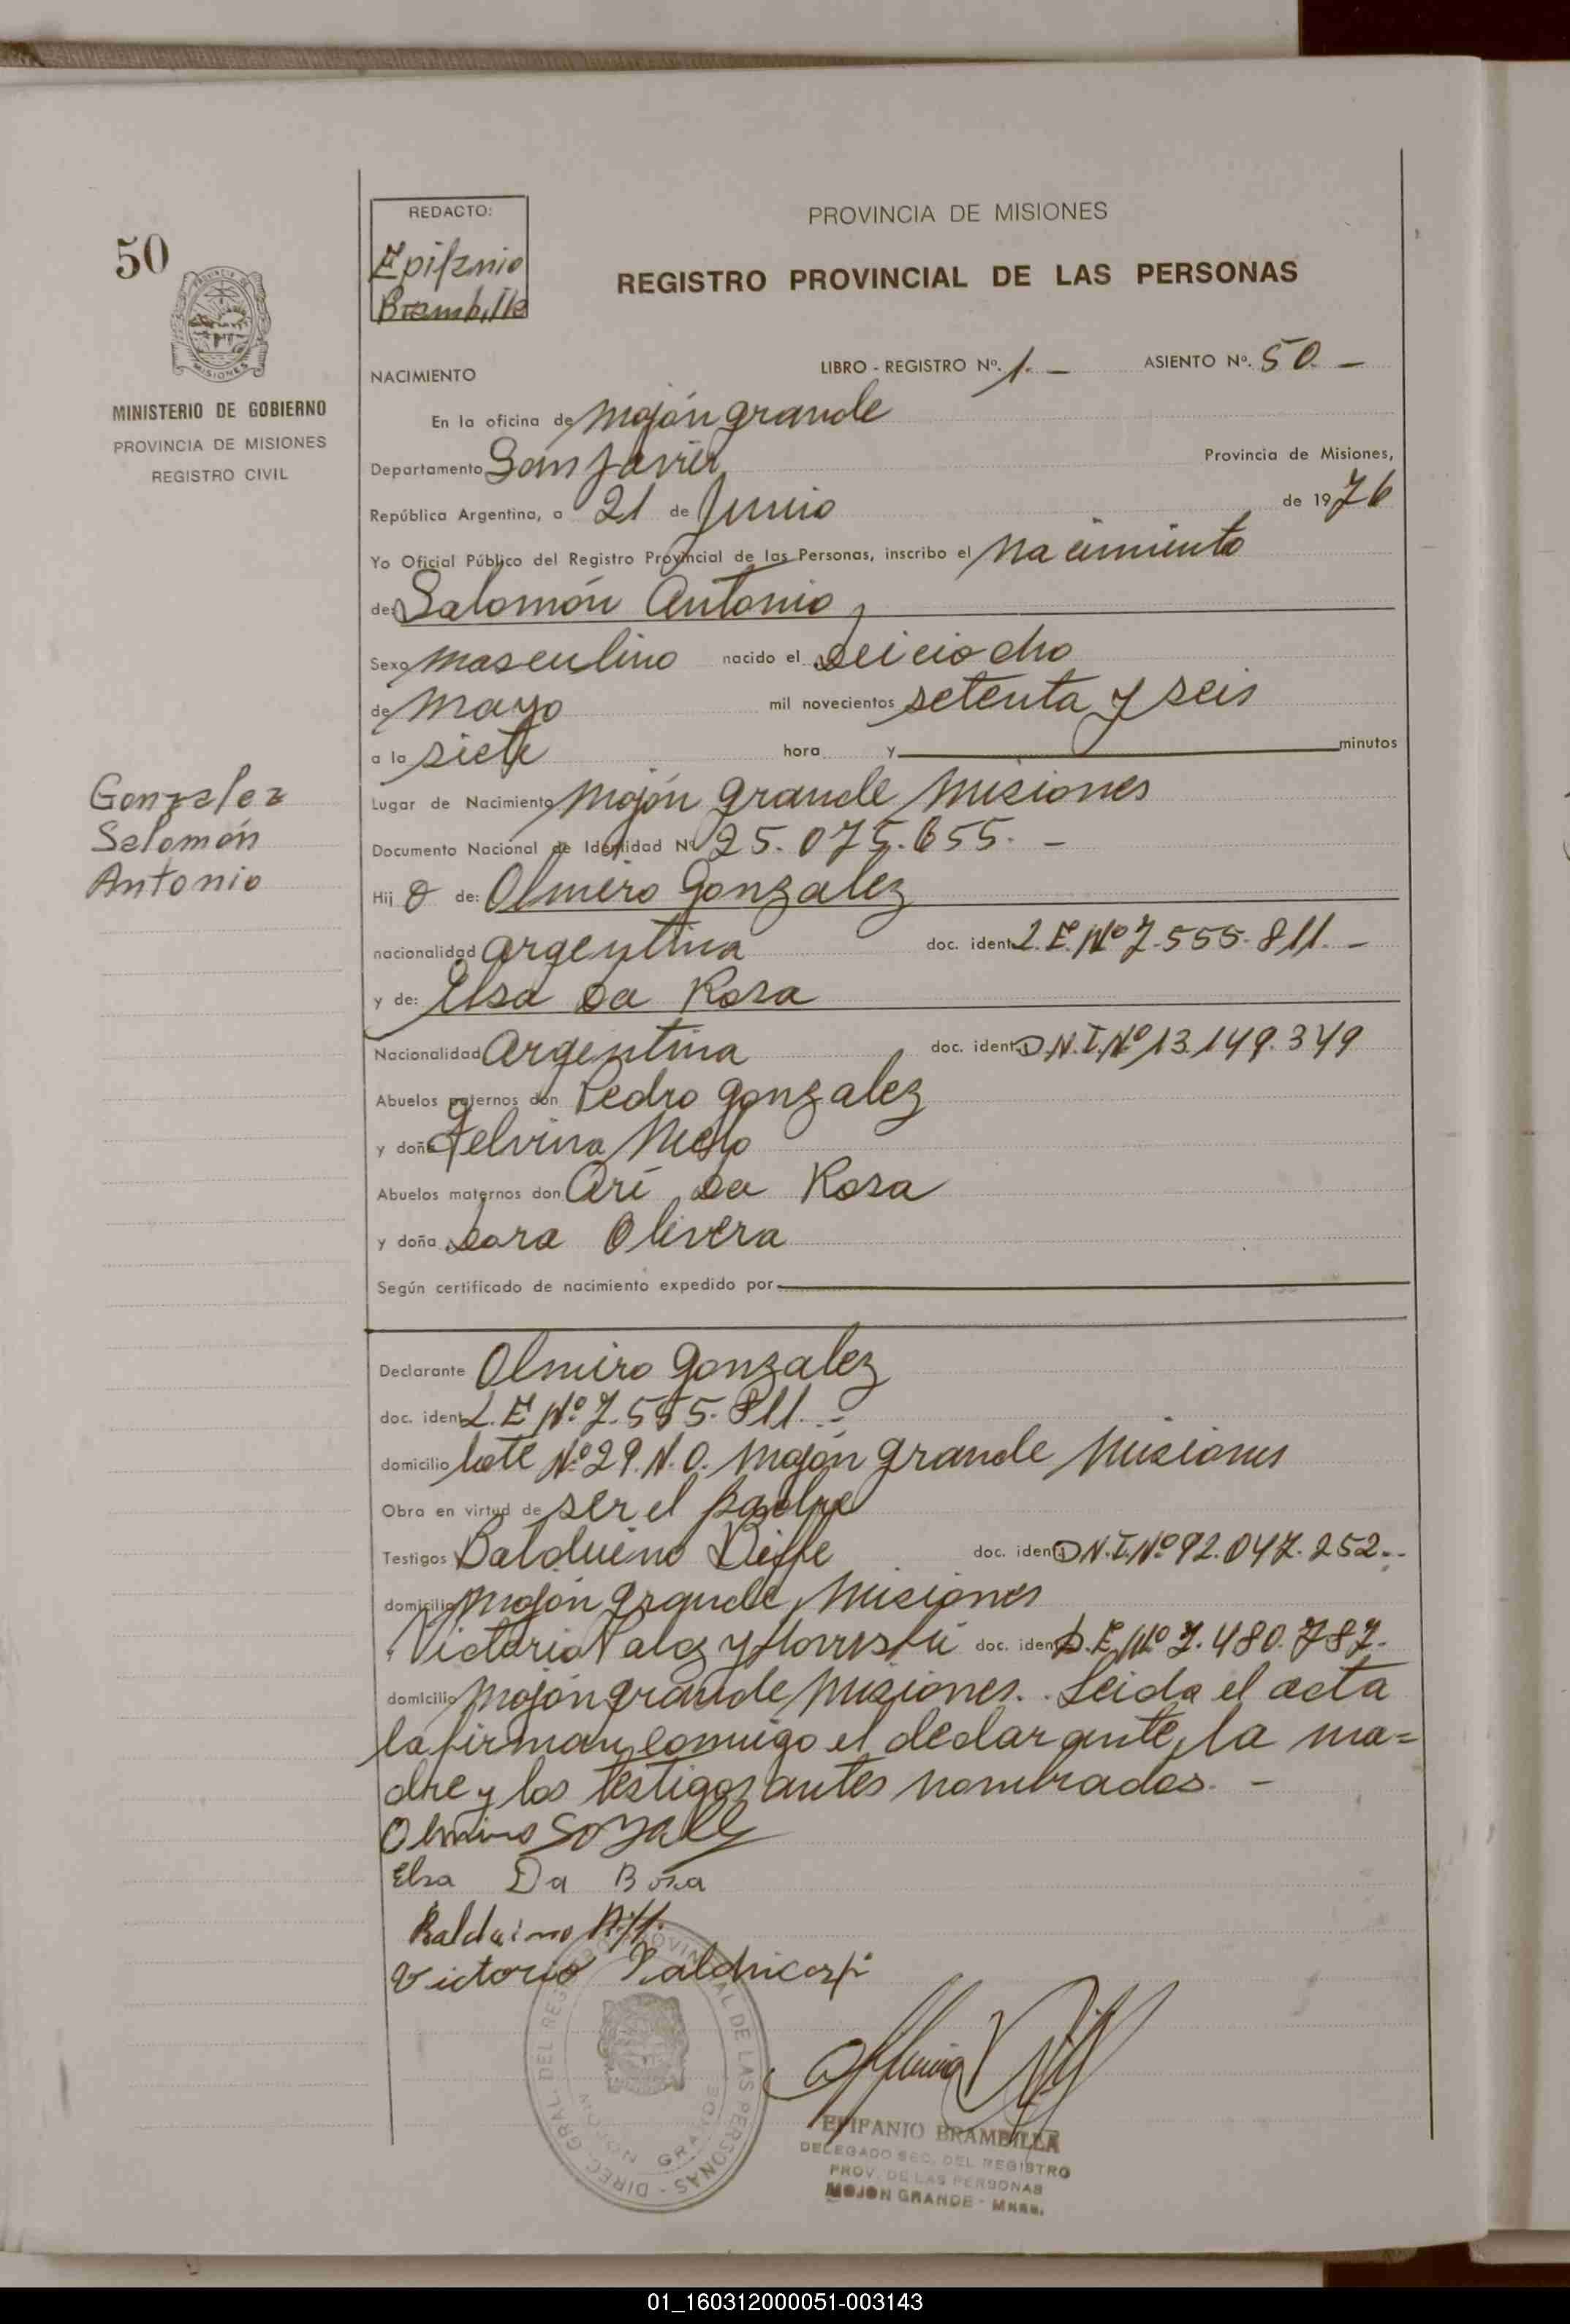 50
REDACTO:
Epifanio
Brambilla
PROVINCIA DE MISIONES
REGISTRO PROVINCIAL DE LAS PERSONAS
MISIONES
MINISTERIO DE GOBIERNO
PROVINCIA DE MISIONES
REGISTRO CIVIL
NACIMIENTO LIBRO - REGISTRO Nº. 1. - ASIENTO Nº. 50. -
En la oficina de Mojón grande
Departamento San Javier Provincia de Misiones,
República Argentina, a 21 de Junio de 1976
Yo Oficial Público del Registro Provincial de las Personas, inscribo el nacimiento
de: Salomón Antonio
Sexo masculino nacido el deiciocho
de mayo mil novecientos setenta y seis
a la siete hora y minutos
Gonzalez
Salomón
Antonio
Lugar de Nacimiento Mojón grande Misiones
Documento Nacional de Identidad Nº 25.075.655. -
Hij o de: Olmiro Gonzalez
nacionalidad argentina doc. ident. L.E. Nº 7.555.811. -
y de: Elsa Da Rosa
Nacionalidad Argentina doc. ident. D.N.I. Nº 13.149.349
Abuelos paternos don Pedro Gonzalez
y doña Felvina Melo
Abuelos maternos don Ari Da Rosa
y doña Sara Olivera
Según certificado de nacimiento expedido por
Declarante Olmiro Gonzalez
doc. ident. L.E Nº 7.555.811. -
domicilio Lote Nº 29. N.O. Mojón grande Misiones
Obra en virtud de ser el padre
Testigos Balduino doc. ident. D.N.I. Nº 92.047.252.-
domicilio Mojón grande Misiones
Victorio doc. ident. L.E. Nº 7.480.787.
domicilio Mojón grande Misiones. Leida el acta
la firman comigo el declarante, la ma=
dre y los testigos antes nombrados. -
Olmiro
Elsa Da Rosa
Balduino
Victorio
DIREC. GRAL. DEL REGISTRO PROVINCIAL DE LAS PERSONAS -
MOJON GRANDE
EPIFANIO BRAMBILLA
DELEGADO SEC. DEL REGISTRO
PROV. DE LAS PERSONAS
MOJON GRANDE - MNES.
01_160312000051-003143